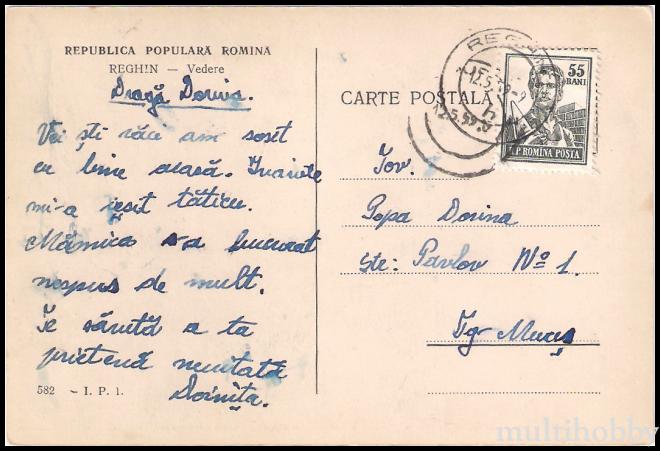 REPUBLICA POPULARĂ ROMINĂ
REGHIN — Vedere
Dragă Dorina.
Vei ști că am sosit
cu bine acasă. Înainte
mi-a ieșit tăticu.
Mămica s-a bucurat
nespus de mult.
Te sărută a ta
prietenă neuitată
Doinița.
582 - I. P. 1.
CARTE POȘTALĂ
REGHIN
12.5.59
55
BANI
R.P. ROMINA POSTA
Tov.
Popa Dorina
Ste: Pavlov No 1.
Tg Mureș
multihobby